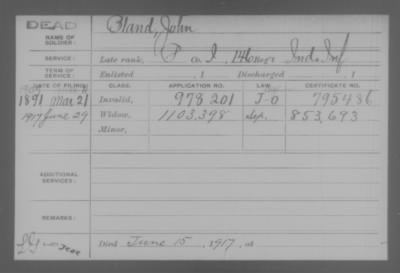 DEAD
NAME OF SOLDIER: Bland, John
SERVICE: Late rank, P Co. I, 146 Reg't Ind. Inf
TERM OF SERVICE: Enlisted , 1 Discharged , 1
DATE OF FILING. CLASS. APPLICATION NO. LAW. CERTIFICATE NO.
1891 Mar 21 Invalid, 978201 J-O 795486
1917 June 29 Widow, 1103,398 853,693
Minor,
ADDITIONAL SERVICES:
REMARKS:
Died June 15, 1917, at